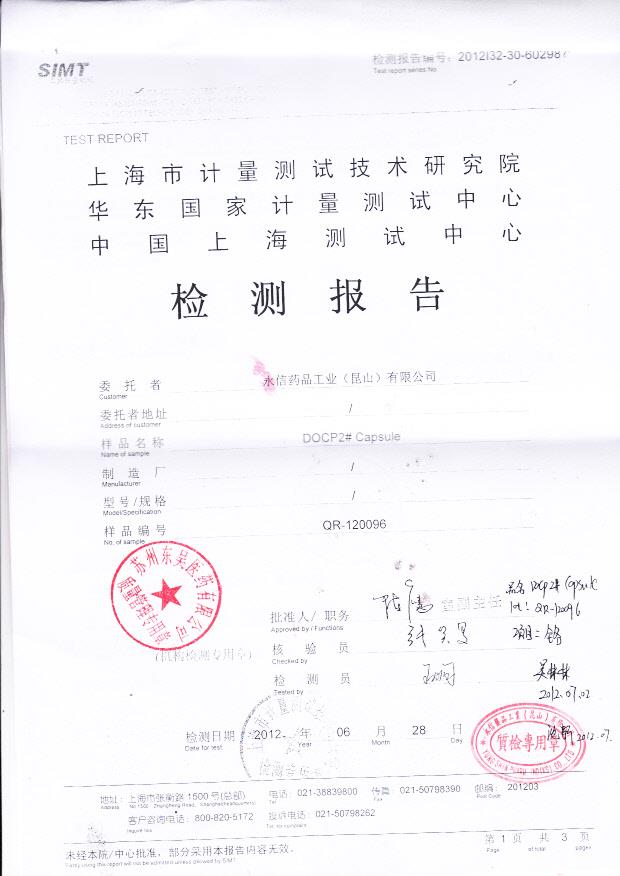 SIMT
检测报告编号: 2012I32-30-602987
Test report series No.
TEST REPORT
上海市计量测试技术研究院
华东国家计量测试中心
中国上海测试中心
检测报告
委托者 永信药品工业(昆山)有限公司
Customer
委托者地址 /
Address of customer
样品名称 DOCP2# Capsule
Name of sample
制造厂 /
Manufacturer
型号/规格 /
Model/Specification
样品编号 QR-120096
No. of sample
苏州东吴医药有限公司
质量管理专用章
品名 DOCP2# Capsule
Lot: QR-120096
批准人/职务 室副主任
Approved by / Functions
核验员
Checked by
(机构检测专用章)
检测员
Tested by
2012.07.02
检测日期 2012 年 06 月 28 日
Date for test Year Month Day
質檢專用章
2012.07.
地址: 上海市张衡路1500号(总部) 电话: 021-38839800 传真: 021-50798390 邮编: 201203
Address No.1500 Zhangheng Road, Shanghai(headquarters) Tel Fax Post Code
客户咨询电话: 800-820-5172 投诉电话: 021-50798262
Inquire line Tel. for complaint
未经本院/中心批准，部分采用本报告内容无效。
Partly using this report will not be admitted unless allowed by SIMT
第 1 页 共 3 页
Page of total pages